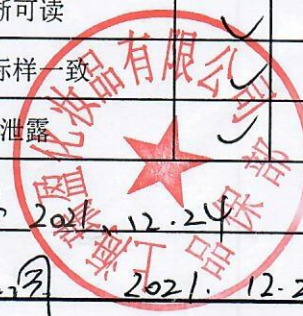 晰可读
标样一致
泄露
上海
盈化妆品有限公司
品保部
2021.12.24
2021.12.2